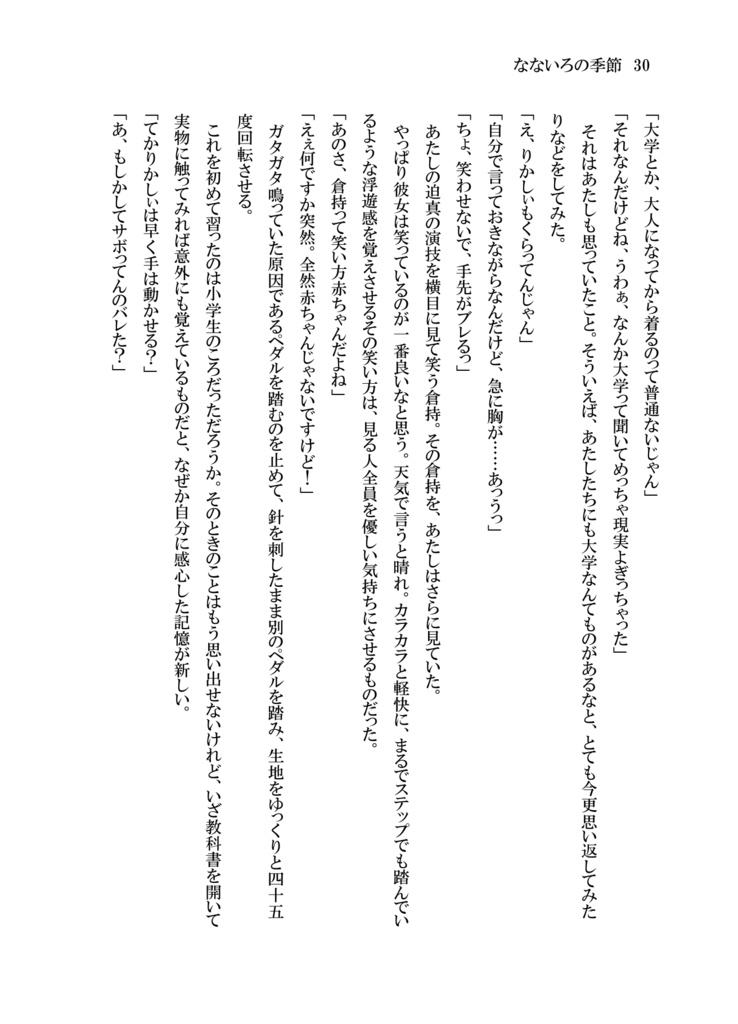 なないろの季節 30
「大学とか、大人になってから着るのって普通ないじゃん」
「それなんだけどね、うわぁ、なんか大学って聞いてめっちゃ現実よぎっちゃった」
それはあたしも思っていたこと。そういえば、あたしたちにも大学なんてものがあるなと、とても今更思い返してみた
りなどをしてみた。
「え、りかしぃもくらってんじゃん」
「自分で言っておきながらなんだけど、急に胸が……あっうっ」
「ちょ、笑わせないで、手先がブレるっ」
あたしの迫真の演技を横目に見て笑う倉持。その倉持を、あたしはさらに見ていた。
やっぱり彼女は笑っているのが一番良いなと思う。天気で言うと晴れ。カラカラと軽快に、まるでステップでも踏んでい
るような浮遊感を覚えさせるその笑い方は、見る人全員を優しい気持ちにさせるものだった。
「あのさ、倉持って笑い方赤ちゃんだよね」
「えぇ何ですか突然。全然赤ちゃんじゃないですけど！」
ガタガタ鳴っていた原因であるペダルを踏むのを止めて、針を刺したまま別のペダルを踏み、生地をゆっくりと四十五
度回転させる。
これを初めて習ったのは小学生のころだっただろうか。そのときのことはもう思い出せないけれど、いざ教科書を開いて
実物に触ってみれば意外にも覚えているものだと、なぜか自分に感心した記憶が新しい。
「てかりかしぃは早く手は動かせる？」
「あ、もしかしてサボってんのバレた？」